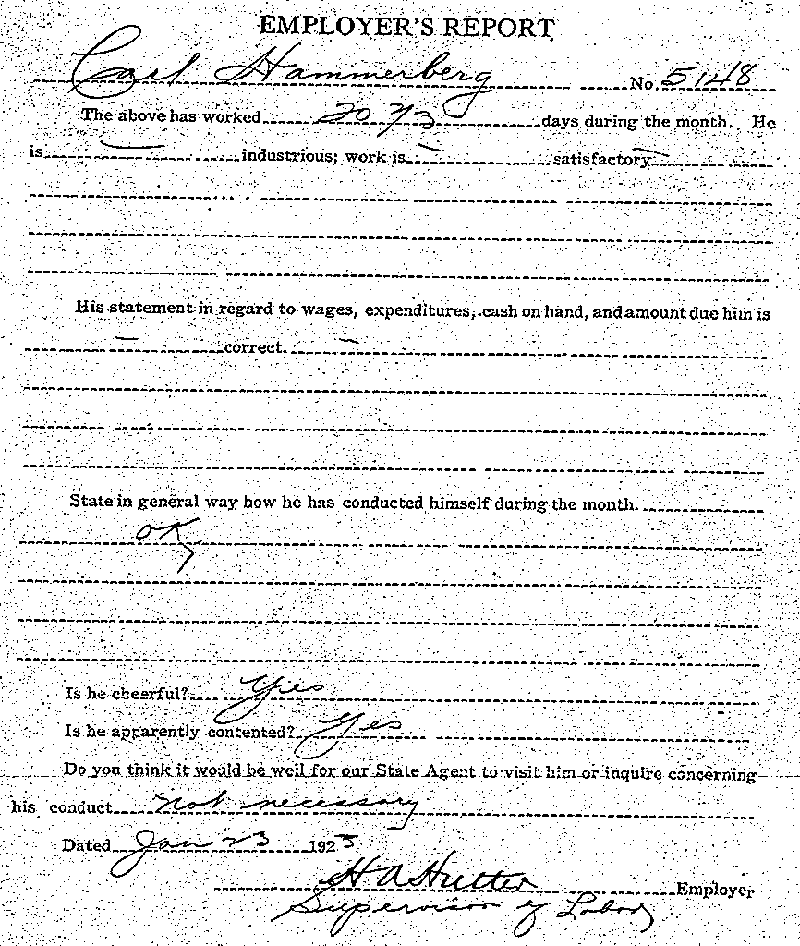 EMPLOYER'S REPORT
Carl Hammerberg No. 5148
The above has worked 20 2/3 days during the month. He
is — industrious; work is — satisfactory —
His statement in regard to wages, expenditures, cash on hand, and amount due him is
— correct. —
State in general way how he has conducted himself during the month.
OK
Is he cheerful? Yes
Is he apparently contented? Yes
Do you think it would be well for our State Agent to visit him or inquire concerning
his conduct not necessary
Dated Jan 23 1923
H A Hutter Employer
Supervisor of Labor